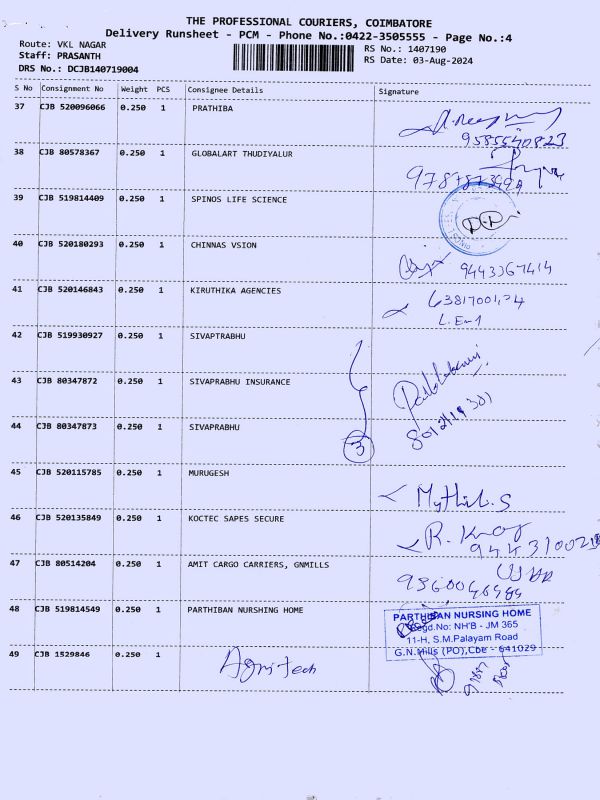 THE PROFESSIONAL COURIERS, COIMBATORE
Delivery Runsheet - PCM - Phone No.:0422-3505555 - Page No.:4
Route: VKL NAGAR RS No.: 1407190
Staff: PRASANTH RS Date: 03-Aug-2024
DRS No.: DCJB140719004
S No Consignment No Weight PCS Consignee Details Signature
37 CJB 520096066 0.250 1 PRATHIBA
9585540823
38 CJB 80578367 0.250 1 GLOBALART THUDIYALUR
39 CJB 519814409 0.250 1 SPINOS LIFE SCIENCE
40 CJB 520180293 0.250 1 CHINNAS VSION
9443367414
41 CJB 520146843 0.250 1 KIRUTHIKA AGENCIES
42 CJB 519930927 0.250 1 SIVAPTRABHU
43 CJB 80347872 0.250 1 SIVAPRABHU INSURANCE
44 CJB 80347873 0.250 1 SIVAPRABHU
3
45 CJB 520115785 0.250 1 MURUGESH
Mythili.S
46 CJB 520135849 0.250 1 KOCTEC SAPES SECURE
47 CJB 80514204 0.250 1 AMIT CARGO CARRIERS, GNMILLS
48 CJB 519814549 0.250 1 PARTHIBAN NURSHING HOME
PARTHIBAN NURSING HOME
Regd.No: NH'B - JM 365
11-H, S.M.Palayam Road
G.N.Mills (PO),Cbe - 641029
49 CJB 1529846 0.250 1 Agritech